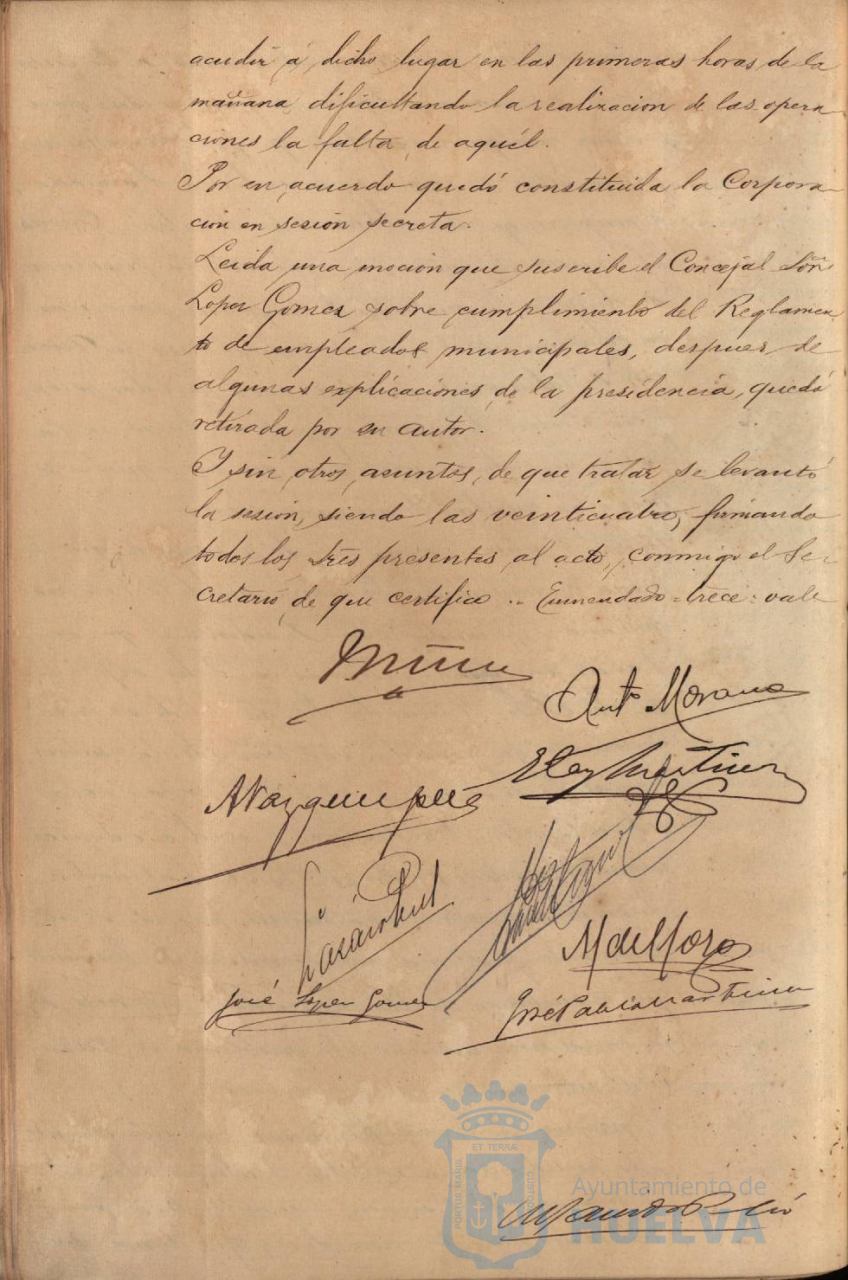 acudir á dicho lugar en las primeras horas de la
mañana, dificultando la realizacion de las opera-
ciones la falta de aquél.
Por en acuerdo quedó constituida la Corpora-
cion en sesión secreta.
Leida una moción que suscribe el Concejal Sor
Lopez Gomez sobre cumplimiento del Reglamen-
to de empleados municipales, despues de
algunas explicaciones de la presidencia, quedó
retirada por su autor.
Y sin otros asuntos de que tratar se levantó
la sesión, siendo las veinticuatro, firmando
todos los Sres presentes al acto, conmigo el Se-
cretario, de que certifico.. Enmendado=trece=vale
Anto Morano
Eloy Martinez
A Vazquez
M del Hoyo
José Lopez Gomez
José Pablo Martinez
ET TERRAE
PORTUS MARIS
CUSTODIA
Ayuntamiento de
HUELVA